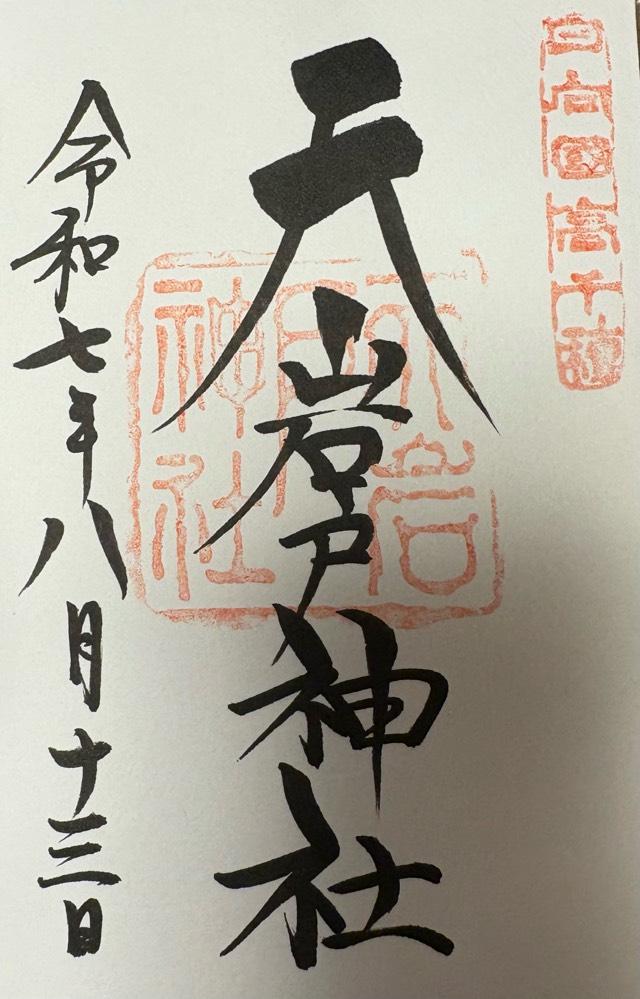 日向国高千穂
天岩戸神社
天岩戸神社
令和七年八月十三日